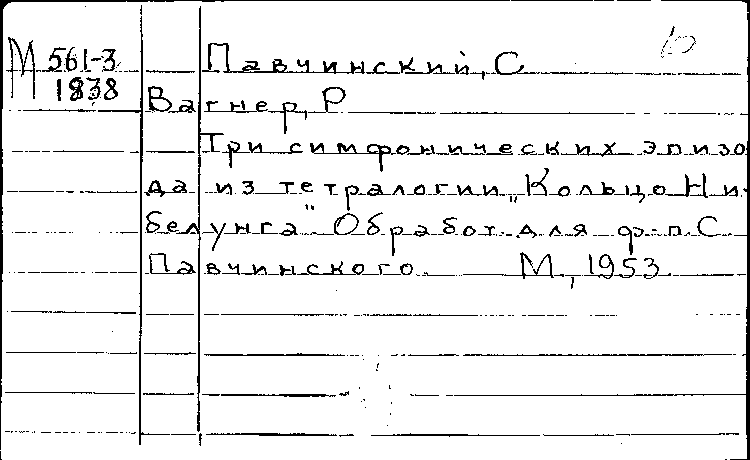 М 561-3 Павчинский, С
1838
Вагнер, Р
Три симфонических эпизо
да из тетралогии „Кольцо Ни-
белунга". Обработ. для ф.-п. С.
Павчинского. М., 1953